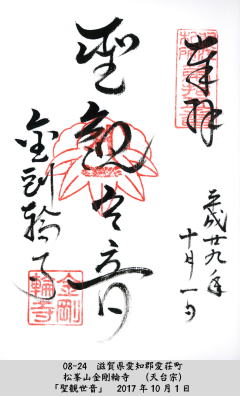 奉拝
平成廿九年
十月一日
聖観世音
金剛輪寺
金剛
輪寺
08-24　滋賀県愛知郡愛荘町
松峯山金剛輪寺　（天台宗）
「聖観世音」　2017年10月1日